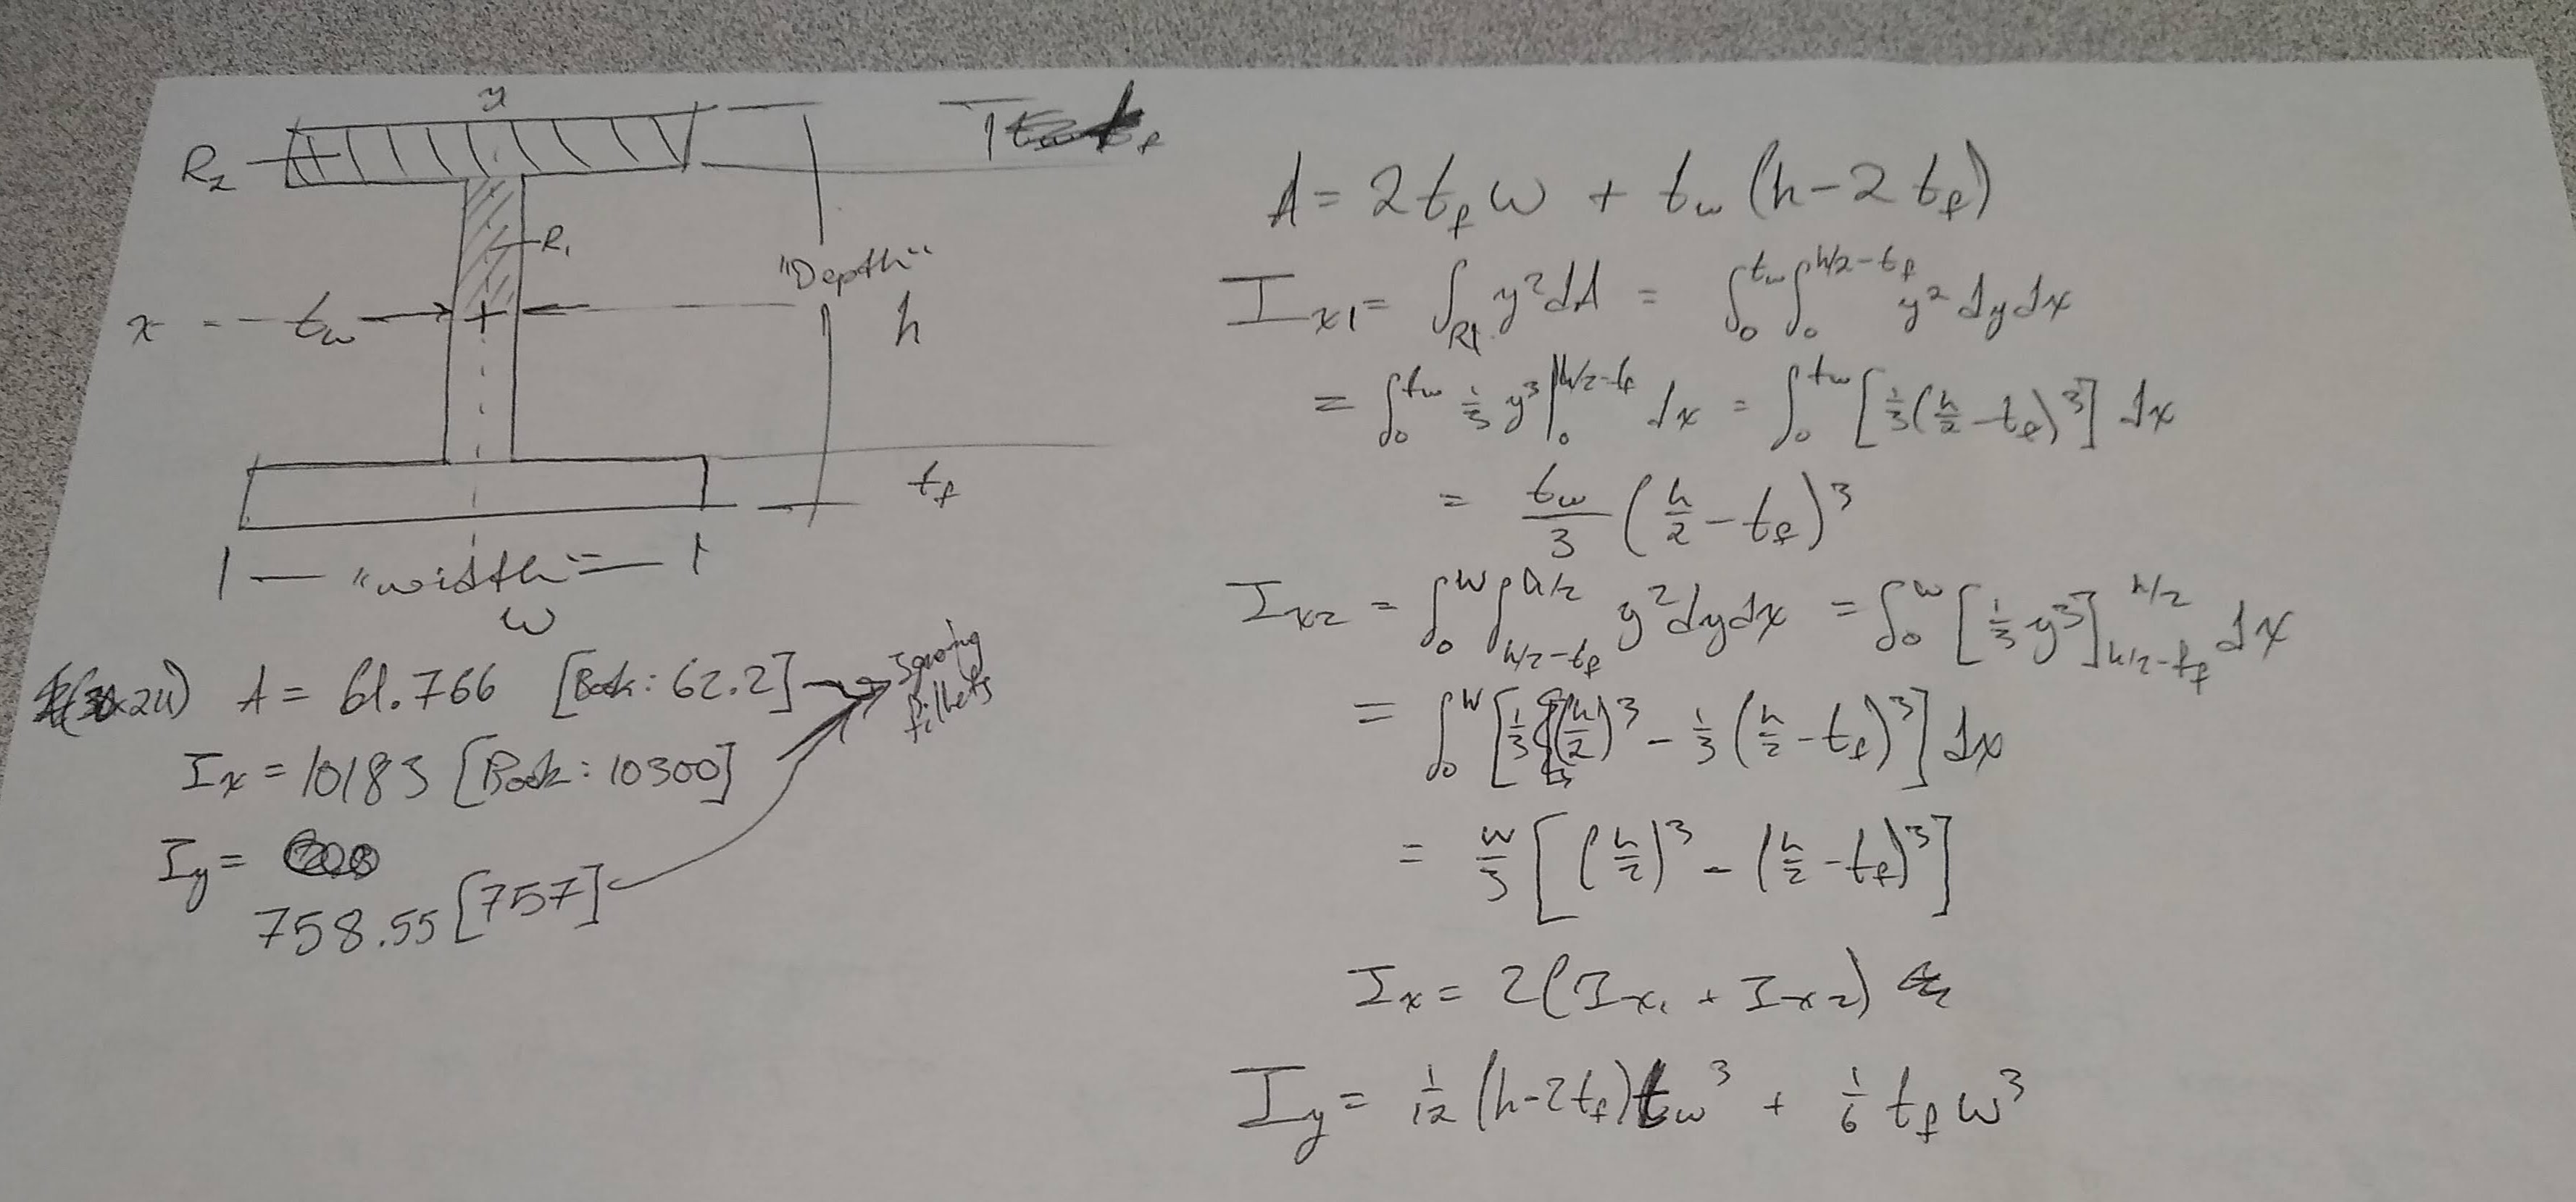 y
R₂
t_f
R₁
"Depth"
x
t_w
h
t_f
"width"
w
A = 61.766 [Book: 62.2]
Ignoring fillets
I_x = 10183 [Book: 10300]
I_y =
758.55 [757]
A = 2 t_f w + t_w (h - 2 t_f)
I_x1 = ∫_R1 y² dA = ∫₀^t_w ∫₀^h/2-t_f y² dy dx
= ∫₀^t_w 1/3 y³ |₀^h/2-t_f dx = ∫₀^t_w [1/3 (h/2 - t_f)³] dx
= t_w/3 (h/2 - t_f)³
I_x2 = ∫₀^w ∫_h/2-t_f^h/2 y² dy dx = ∫₀^w [1/3 y³]_h/2-t_f^h/2 dx
= ∫₀^w [1/3 (h/2)³ - 1/3 (h/2 - t_f)³] dx
= w/3 [(h/2)³ - (h/2 - t_f)³]
I_x = 2 (I_x1 + I_x2)
I_y = 1/12 (h - 2t_f) t_w³ + 1/6 t_f w³